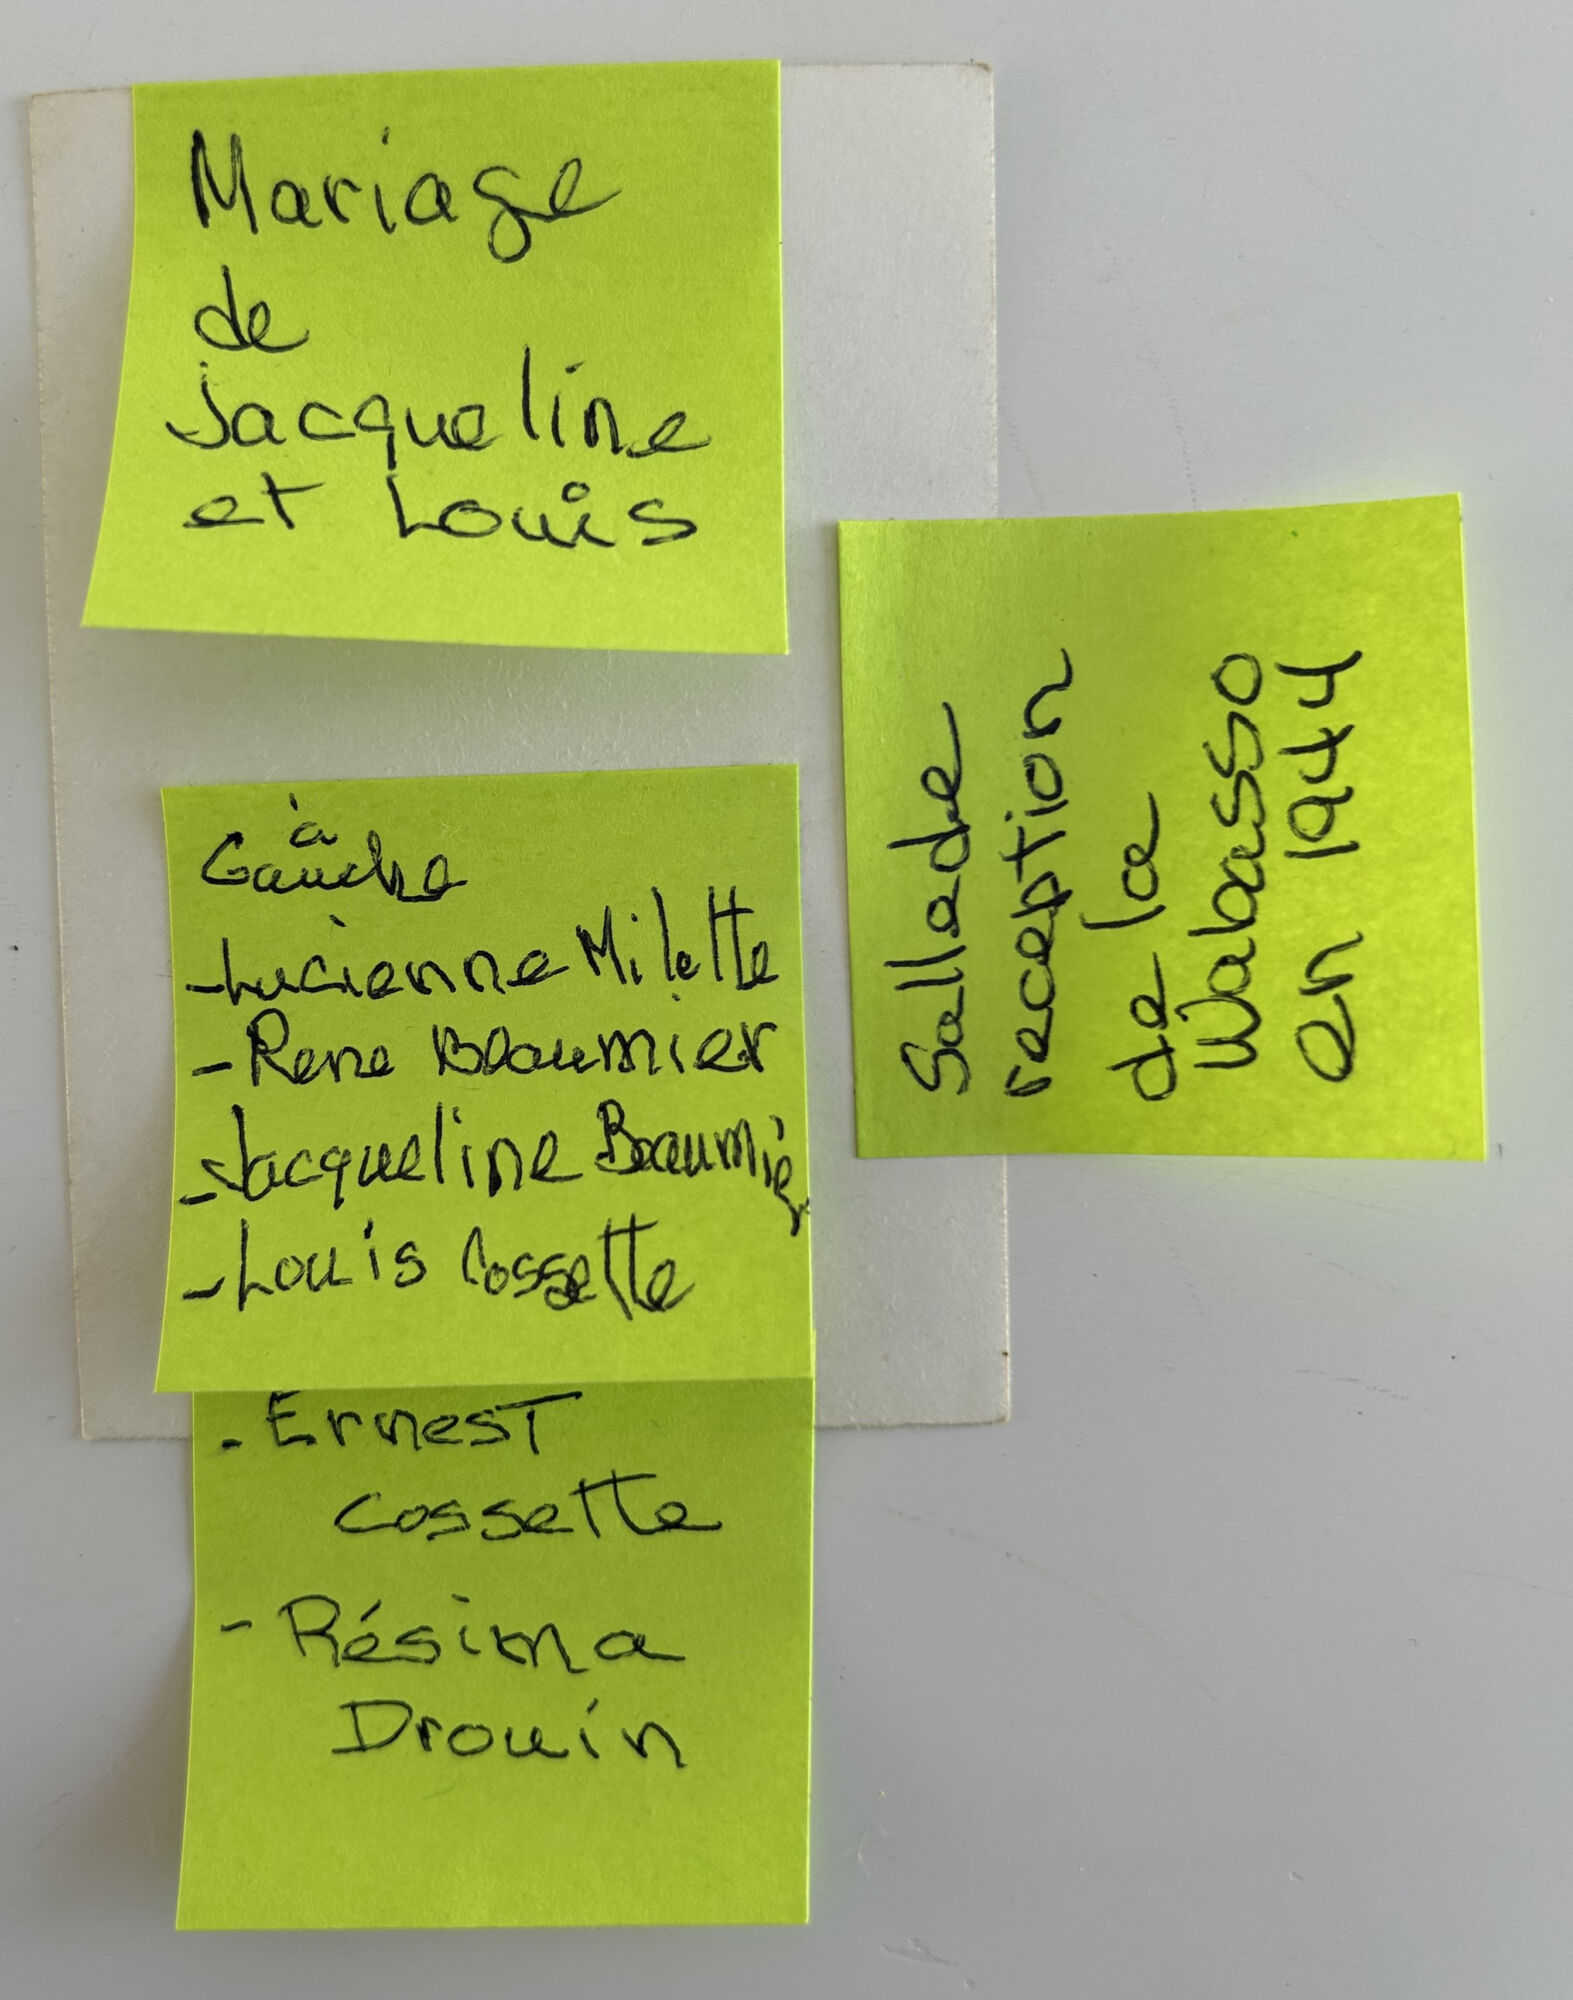 Mariage
de
Jacqueline
et Louis
à
Gauche
- Lucienne Milette
- Rene Beaumier
- Jacqueline Beaumier
- Louis Cossette
- Ernest
Cossette
- Résima
Drouin
Sallede
reception
de la
Wabasso
en 1944